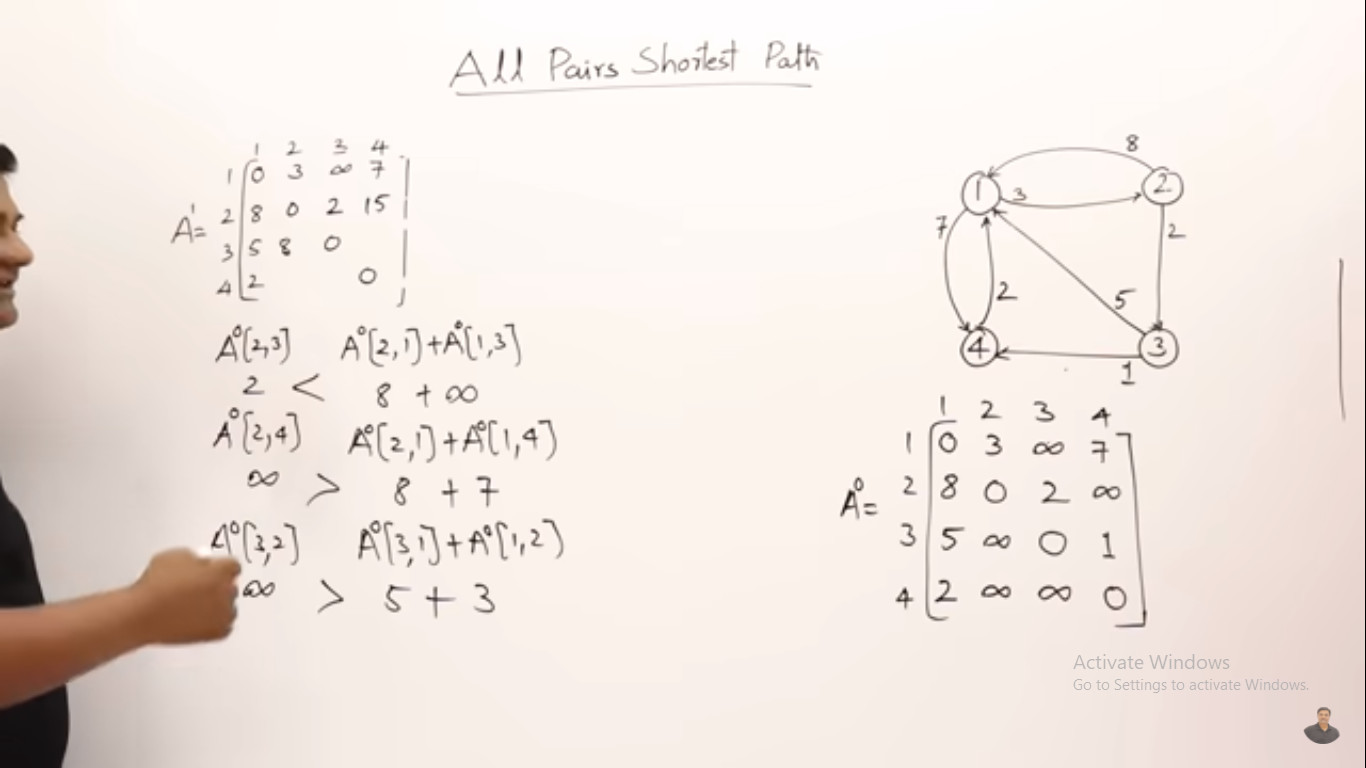 All Pairs Shortest Path
1 2 3 4
1 0 3 ∞ 7
A¹= 2 8 0 2 15
3 5 8 0
4 2 0
A⁰[2,3] A⁰[2,1]+A⁰[1,3]
2 < 8 + ∞
A⁰[2,4] A⁰[2,1]+A⁰[1,4]
∞ > 8 + 7
A⁰[3,2] A⁰[3,1]+A⁰[1,2]
∞ > 5 + 3
8
1 3 2
7 2
2 5
4 3
1
1 2 3 4
1 0 3 ∞ 7
A⁰= 2 8 0 2 ∞
3 5 ∞ 0 1
4 2 ∞ ∞ 0
Activate Windows
Go to Settings to activate Windows.